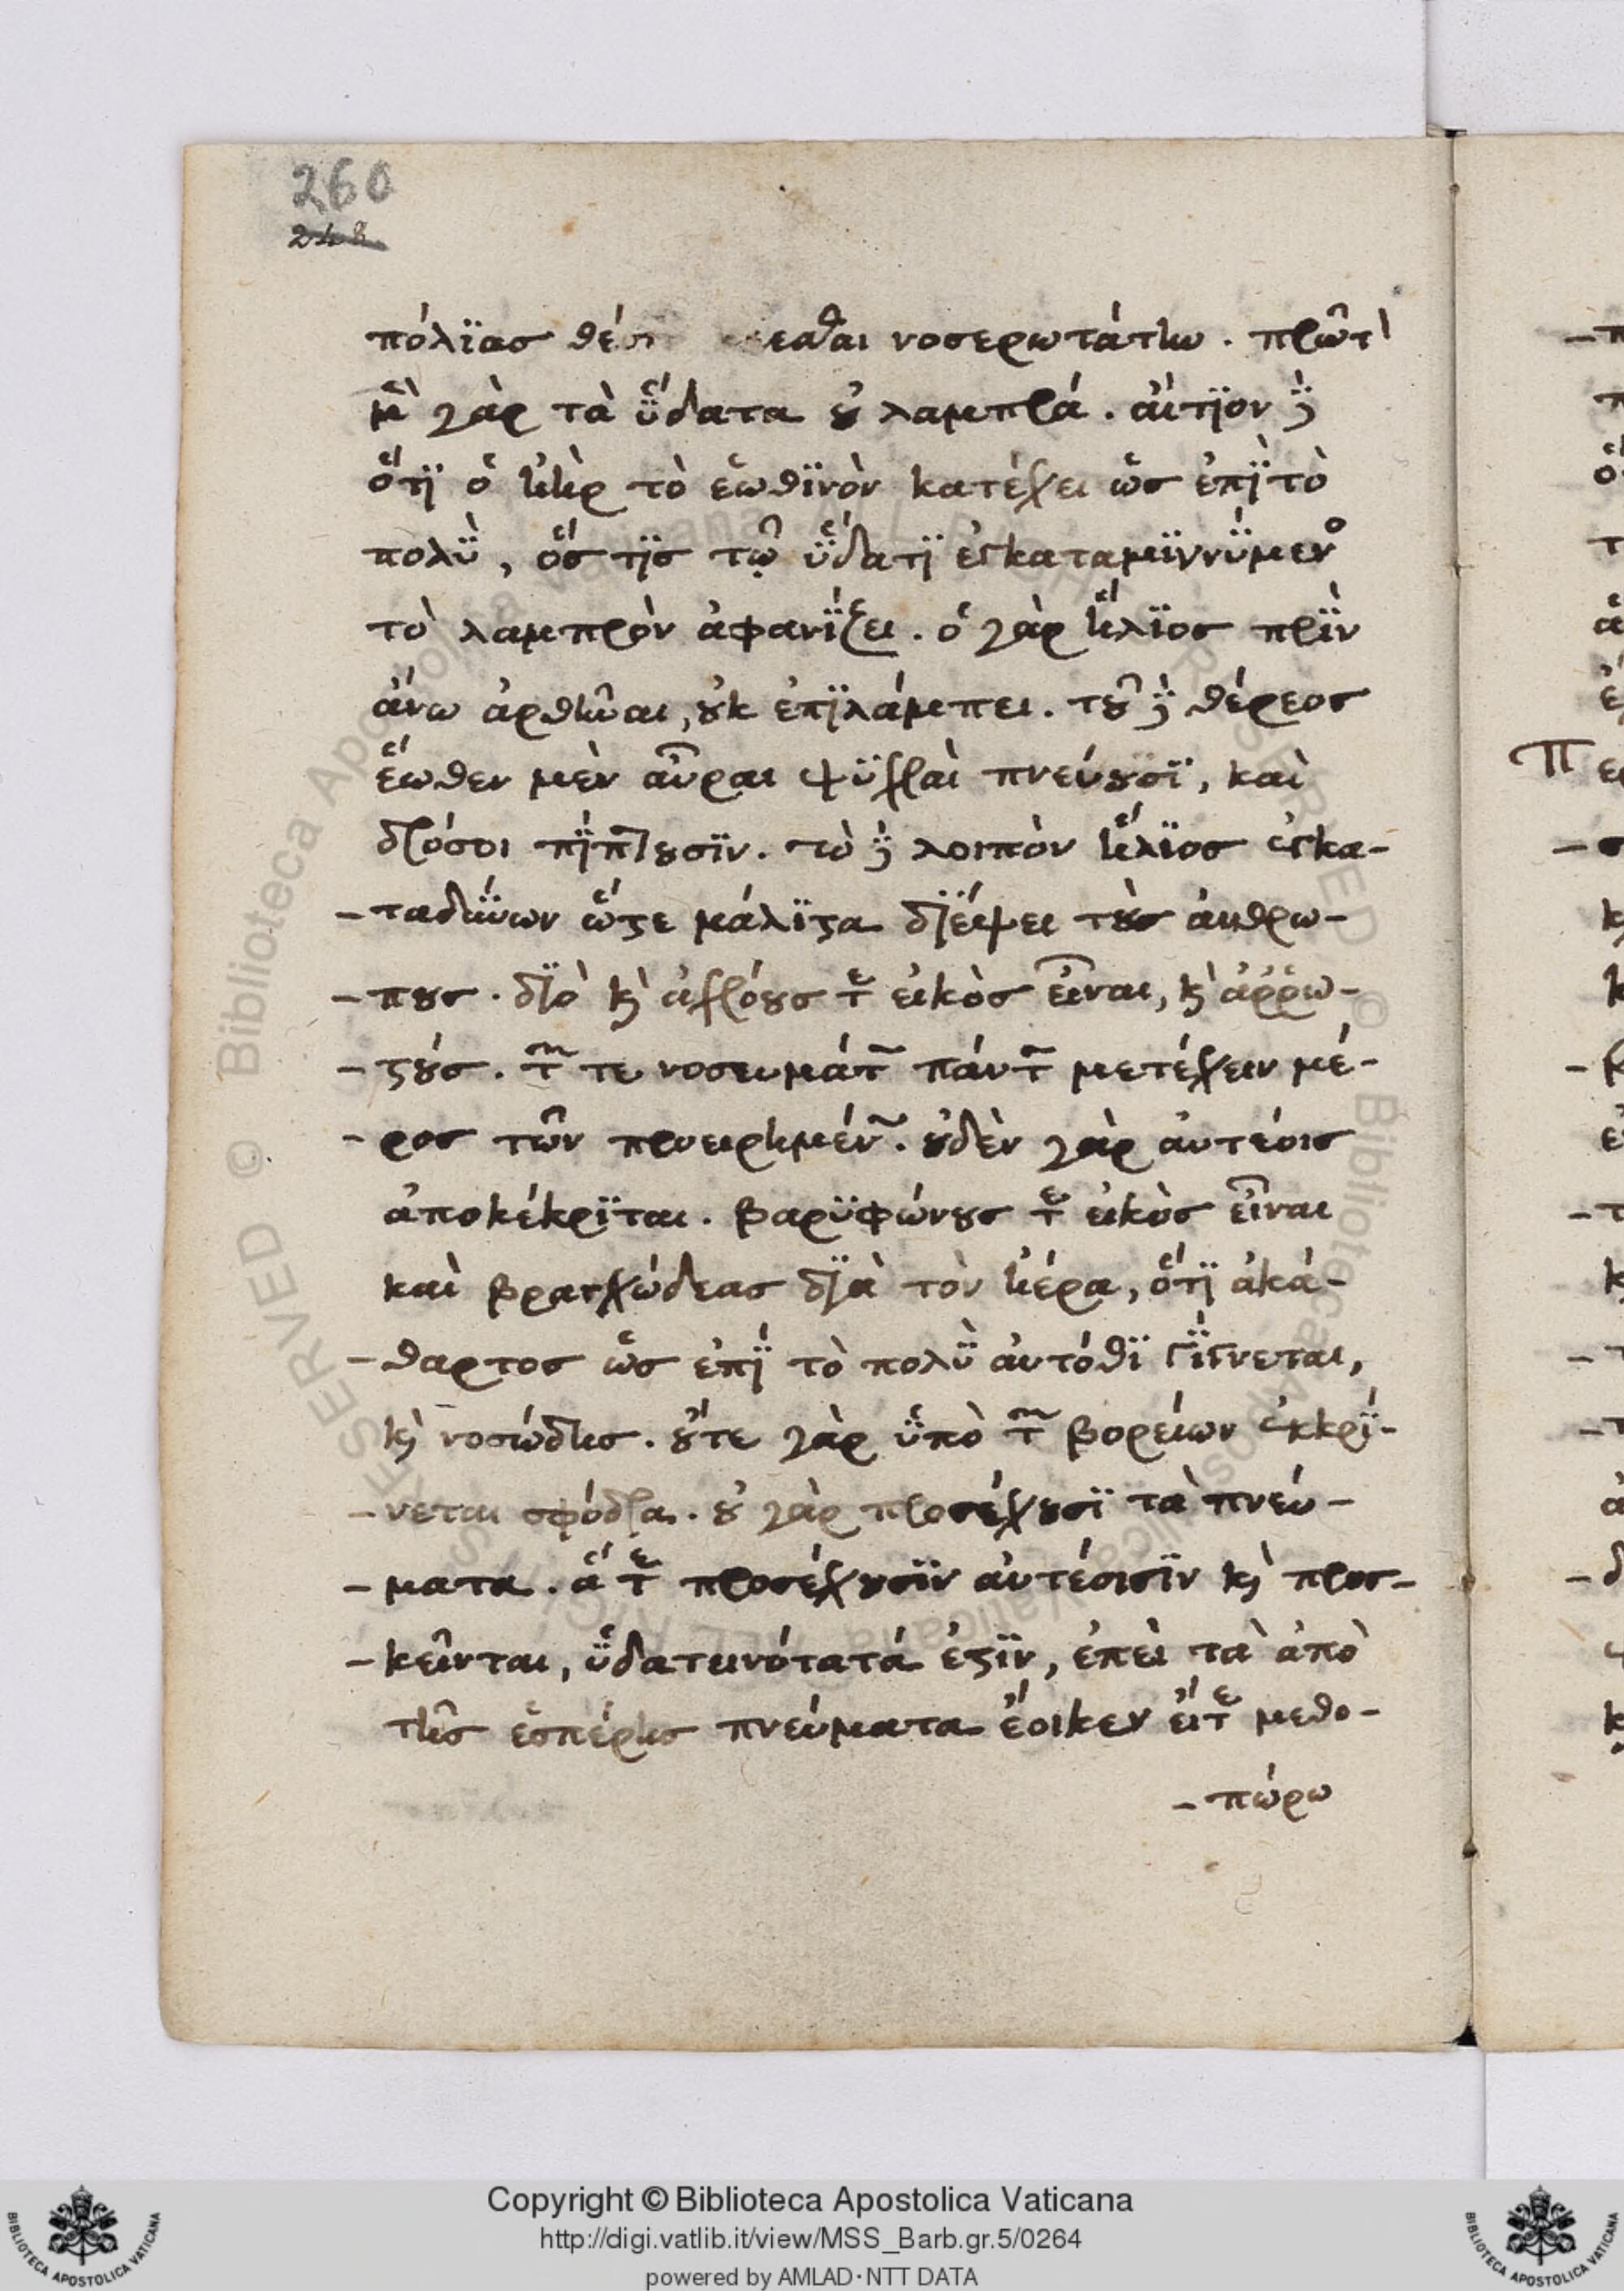 260
248
πόλϊας θέσιν κέεσθαι νοσερωτάτην. πρῶτον
μὲν γὰρ τὰ ὕδατα οὐ λαμπρά. αἴτϊον δὲ
ὅτϊ ὁ ἠὴρ τὸ ἑωθϊνὸν κατέχει ὡς ἐπϊτὸ
πολὺ, ὅς τϊς τῷ ὕδατϊ ἐγκαταμϊγνύμενος
τὸ λαμπρὸν ἀφανΐζει. ὁ γὰρ ἥλϊος πρὶν
ἄνω ἀρθῆναι, οὐκ ἐπϊλάμπει. τοῦ δὲ θέρεος
ἕωθεν μὲν αὖραι ψϋχραὶ πνεύουσϊ, καὶ
δρόσοι πΐπτουσϊν. τὸ δὲ λοιπὸν ἥλϊος ἐγκα-
-ταδύνων ὥστε μάλϊστα δϊέψει τοὺς ἀνθρώ-
-πους. δϊὸ καὶ ἀχρόους τε εἰκὸς εἶναι, καὶ ἀῤῥώ-
-στους. τῶν τε νοσευμάτων πάντων μετέχειν μέ-
-ρος τῶν προειρημένων. οὐδὲν γὰρ αὐτέοις
ἀποκέκρϊται. βαρϋφώνους τε εἰκὸς εἶναι
καὶ βραγχώδεας δϊὰ τὸν ἠέρα, ὅτϊ ἀκά-
-θαρτος ὡς ἐπὶ τὸ πολὺ αὐτόθϊ γΐγνεται,
καὶ νοσώδης. οὔτε γὰρ ὑπὸ τῶν βορείων ἐκκρΐ-
-νεται σφόδρα. οὐ γὰρ προσέχουσϊ τὰ πνεύ-
-ματα. ἅ τε προσέχουσϊν αὐτέοισϊν καὶ προσ-
-κεῖνται, ὑδατεινότατά ἐστϊν, ἐπεὶ τὰ ἀπὸ
τῆς ἑσπέρης πνεύματα ἔοικεν εἴτε μεθο-
-πώρω
Copyright © Biblioteca Apostolica Vaticana
http://digi.vatlib.it/view/MSS_Barb.gr.5/0264
powered by AMLAD·NTT DATA